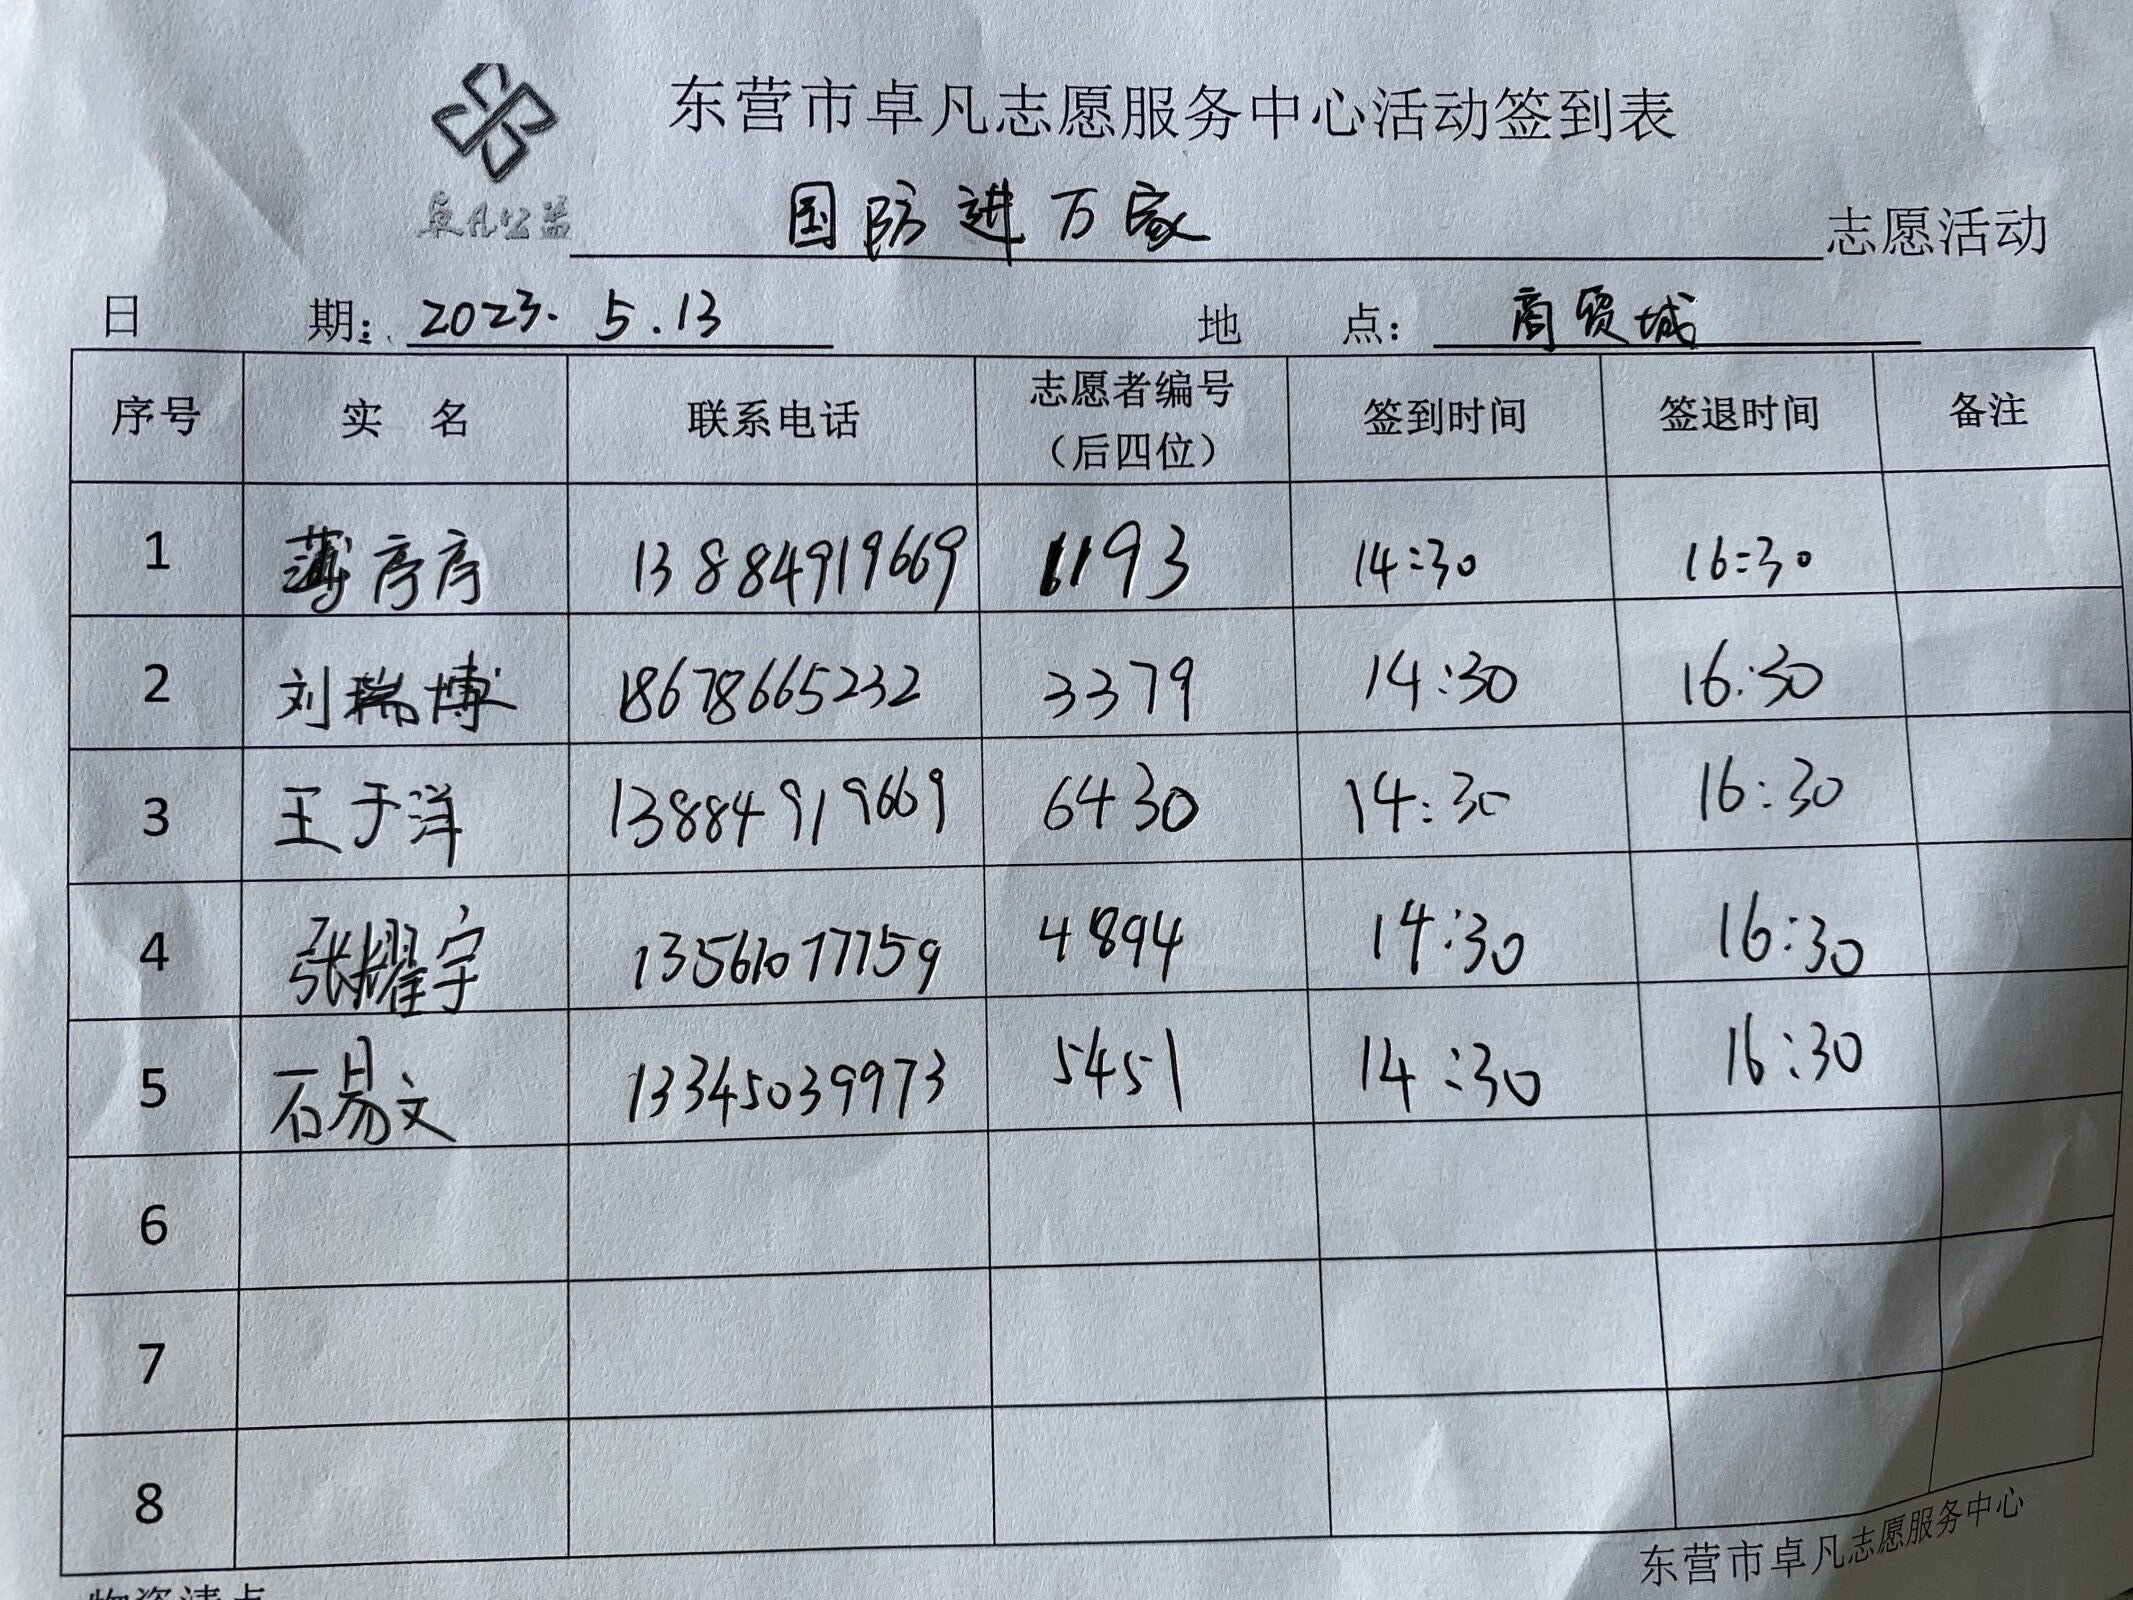 东营市卓凡志愿服务中心活动签到表
卓凡公益
国防进万家 志愿活动
日 期: 2023.5.13 地 点: 商贸城
序号 实 名 联系电话 志愿者编号（后四位） 签到时间 签退时间 备注
1 薄序序 13884919669 1193 14:30 16:30
2 刘瑞博 18678665232 3379 14:30 16:30
3 王于洋 13884919669 6430 14:30 16:30
4 张耀宇 13561077759 4894 14:30 16:30
5 石易文 13345039973 5451 14:30 16:30
6
7
8
东营市卓凡志愿服务中心
物资清点